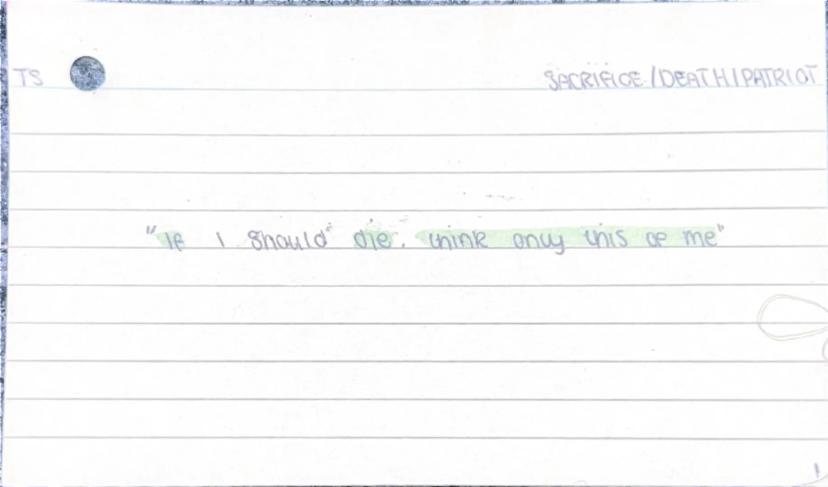 TS SACRIFICE/DEATH/PATRIOT
"If I should die, think only this of me"